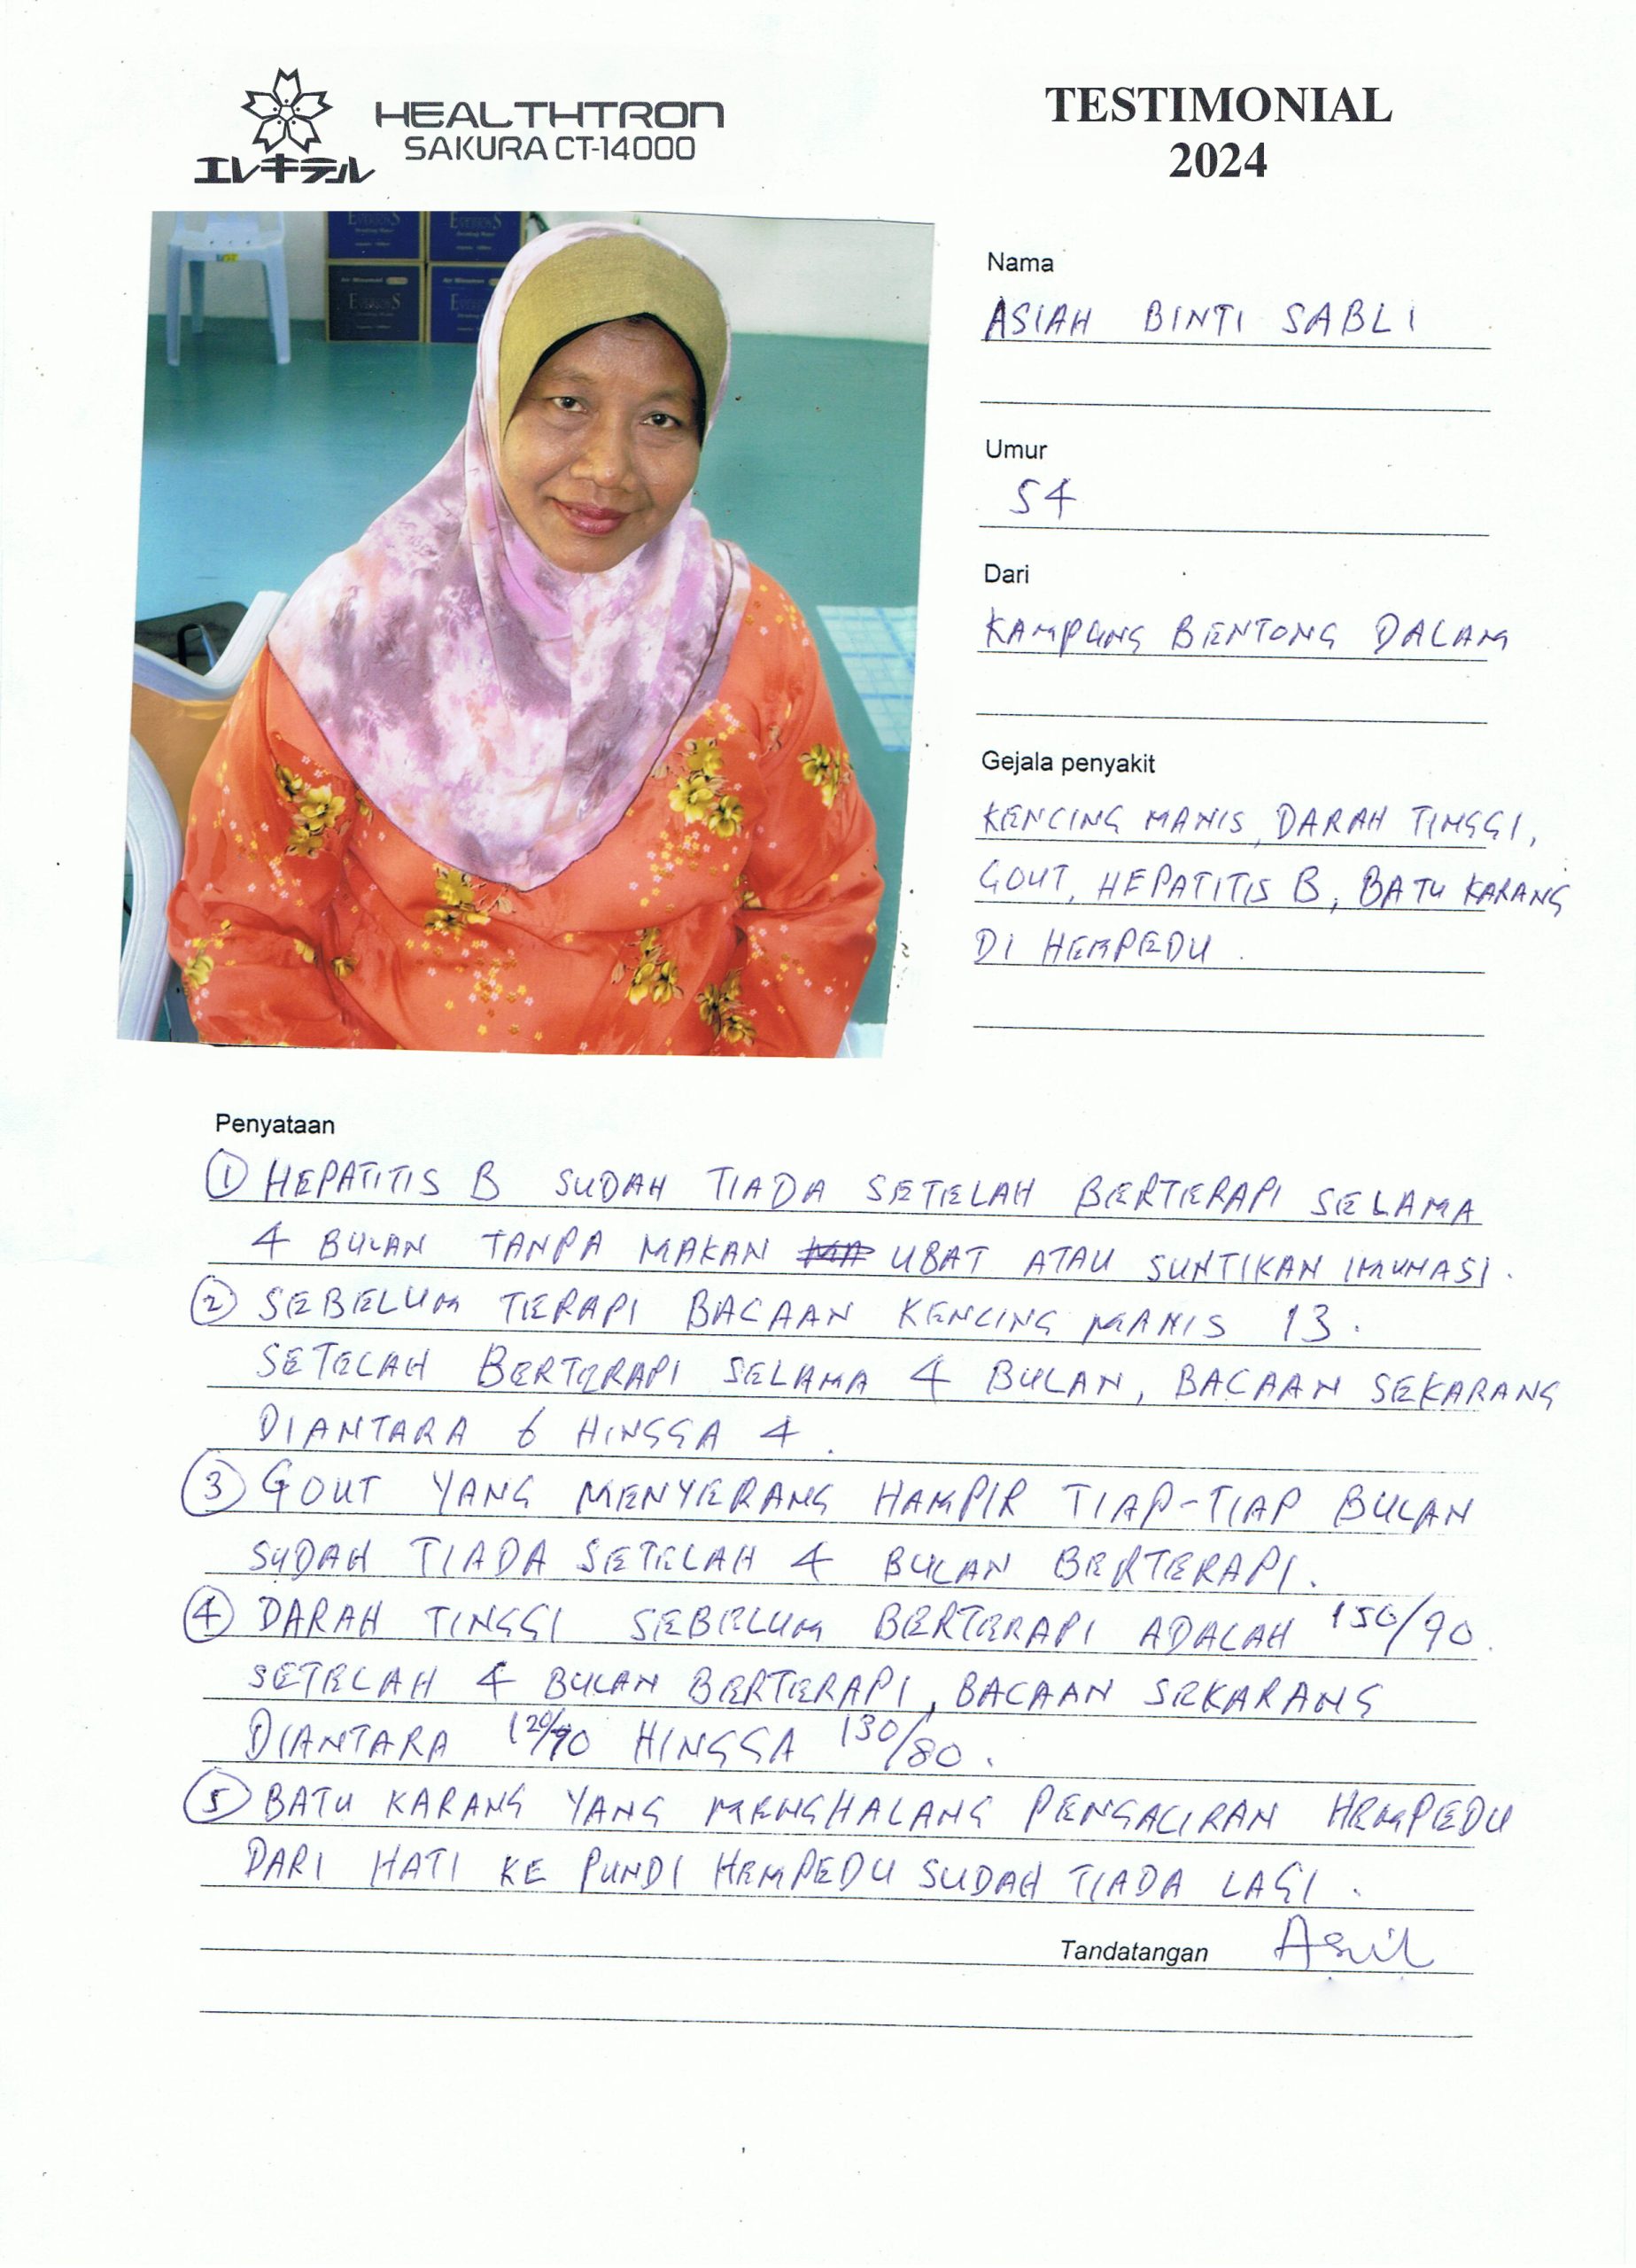 HEALTHTRON
SAKURA CT-14000
エレキテル
TESTIMONIAL
2024
Nama
ASIAH BINTI SABLI
Umur
54
Dari
KAMPUNG BENTONG DALAM
Gejala penyakit
KENCING MANIS, DARAH TINGGI,
GOUT, HEPATITIS B, BATU KARANG
DI HEMPEDU.
Penyataan
① HEPATITIS B SUDAH TIADA SETELAH BERTERAPI SELAMA
4 BULAN TANPA MAKAN UBAT ATAU SUNTIKAN IMUNASI.
② SEBELUM TERAPI BACAAN KENCING MANIS 13.
SETELAH BERTERAPI SELAMA 4 BULAN, BACAAN SEKARANG
DIANTARA 6 HINGGA 4.
③ GOUT YANG MENYERANG HAMPIR TIAP-TIAP BULAN
SUDAH TIADA SETELAH 4 BULAN BERTERAPI.
④ DARAH TINGGI SEBELUM BERTERAPI ADALAH 150/90.
SETELAH 4 BULAN BERTERAPI, BACAAN SEKARANG
DIANTARA 120/90 HINGGA 130/80.
⑤ BATU KARANG YANG MENGHALANG PENGALIRAN HEMPEDU
DARI HATI KE PUNDI HEMPEDU SUDAH TIADA LAGI.
Tandatangan